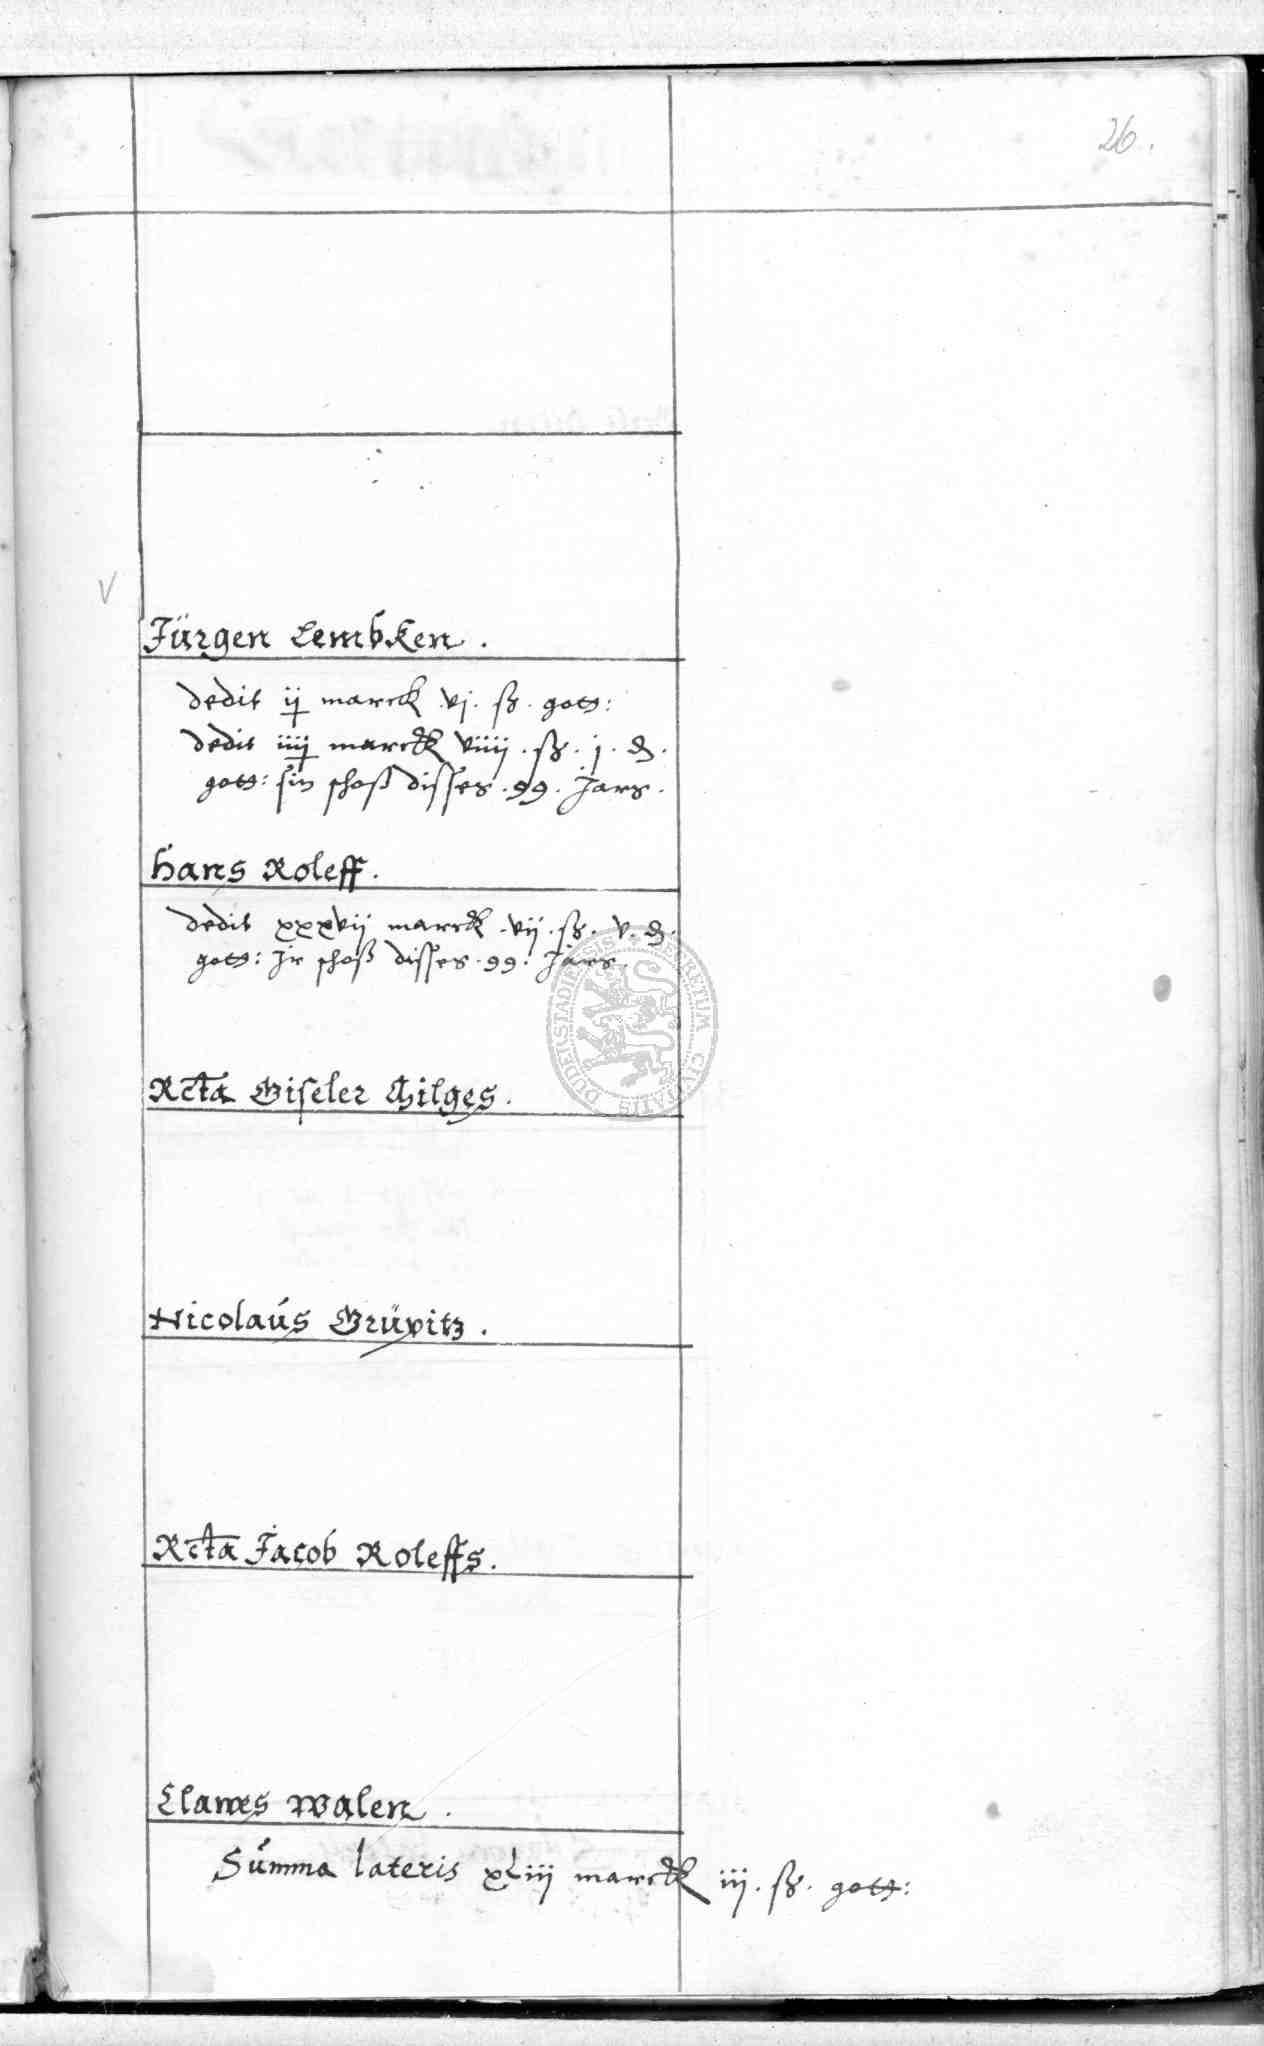 26.
V
Jürgen Lembken.
dedit ij marck vj. ß. gott:
dedit iiij marck viiij. ß. j. ₰.
gott: sin schoß disses. 99. Jars.
Hans Roleff.
dedit xxxvij marck. vij. ß. v. ₰.
gott: Jr schoß disses. 99. Jars.
DUDERSTADIENSIS SECRETUM CIVITATIS
Rcta Giseler Thilges.
Nicolaus Grüvitz.
Rcta Jacob Roleffs.
Clawes Walen.
Summa lateris xLiij marck iij. ß. gott: